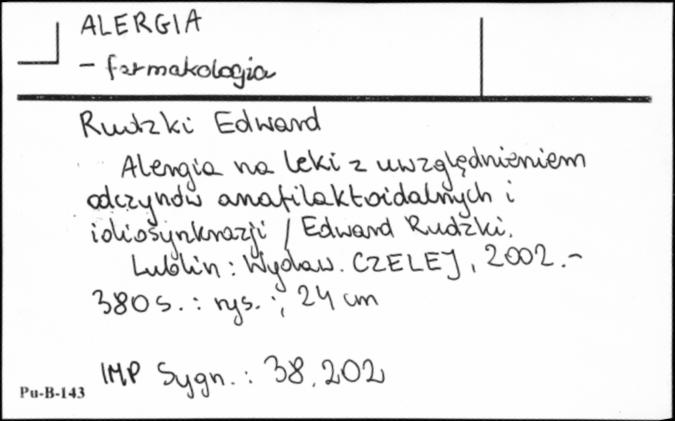 ALERGIA
- farmakologia
Rudzki Edward
Alergia na leki z uwzględnieniem
odczynów anafilaktoidalnych i
idiosynkrazji / Edward Rudzki.
Lublin : Wydaw. CZELEJ, 2002. -
380 s. : rys. ; 24 cm
IMP Sygn. : 38.202
Pu-B-143